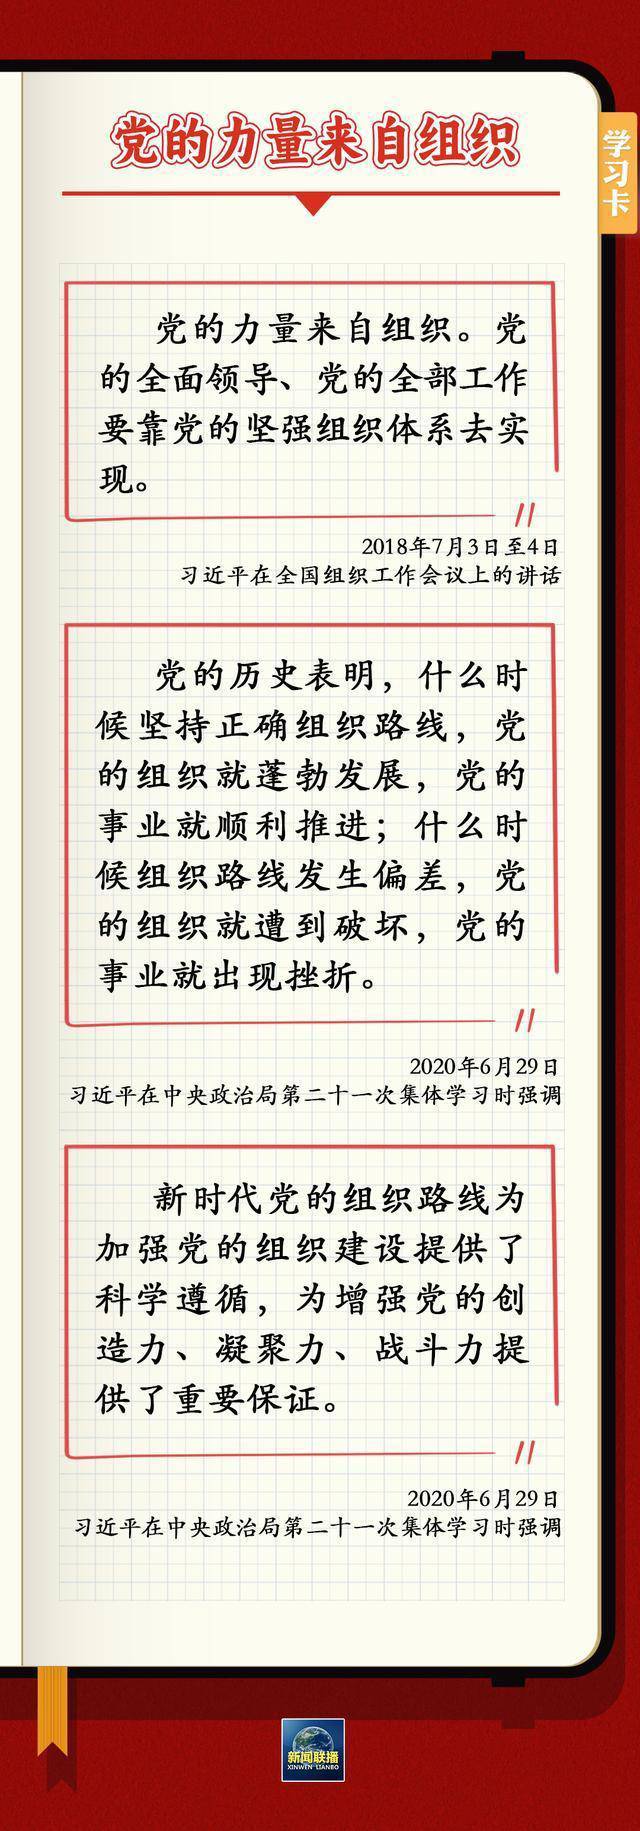 党的力量来自组织
学习卡
党的力量来自组织。党
的全面领导、党的全部工作
要靠党的坚强组织体系去实
现。
2018年7月3日至4日
习近平在全国组织工作会议上的讲话
党的历史表明，什么时
候坚持正确组织路线，党
的组织就蓬勃发展，党的
事业就顺利推进；什么时
候组织路线发生偏差，党
的组织就遭到破坏，党的
事业就出现挫折。
2020年6月29日
习近平在中央政治局第二十一次集体学习时强调
新时代党的组织路线为
加强党的组织建设提供了
科学遵循，为增强党的创
造力、凝聚力、战斗力提
供了重要保证。
2020年6月29日
习近平在中央政治局第二十一次集体学习时强调
新闻联播
XINWEN LIANBO